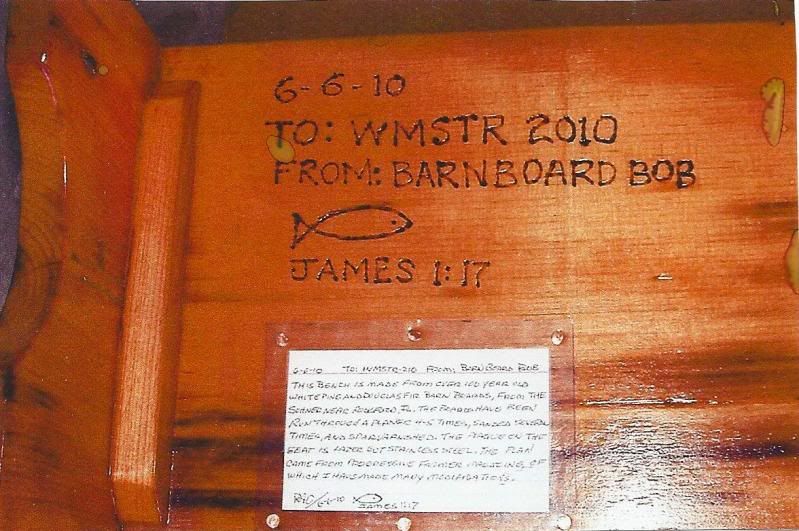 6-6-10
TO: WMSTR 2010
FROM: BARNBOARD BOB
JAMES 1:17
6-6-10 TO: WMSTR-210 FROM: BARN BOARD BOB
THIS BENCH IS MADE FROM OVER 100 YEAR OLD
WHITE PINE AND DOUGLAS FIR BARN BOARDS, FROM THE
NEAR ROCKFORD, IL. THE BOARDS HAVE BEEN
RUN THROUGH A PLANER 4-5 TIMES, SANDED SEVERAL
TIMES, AND SPAR VARNISHED. THE PLAQUE ON THE
SEAT IS LAZER CUT STAINLESS STEEL. THE PLAN
CAME FROM PROGRESSIVE FARMER MAGAZINE, OF
WHICH I HAVE MADE MANY MODIFICATIONS.
6-6-10
JAMES 1:17